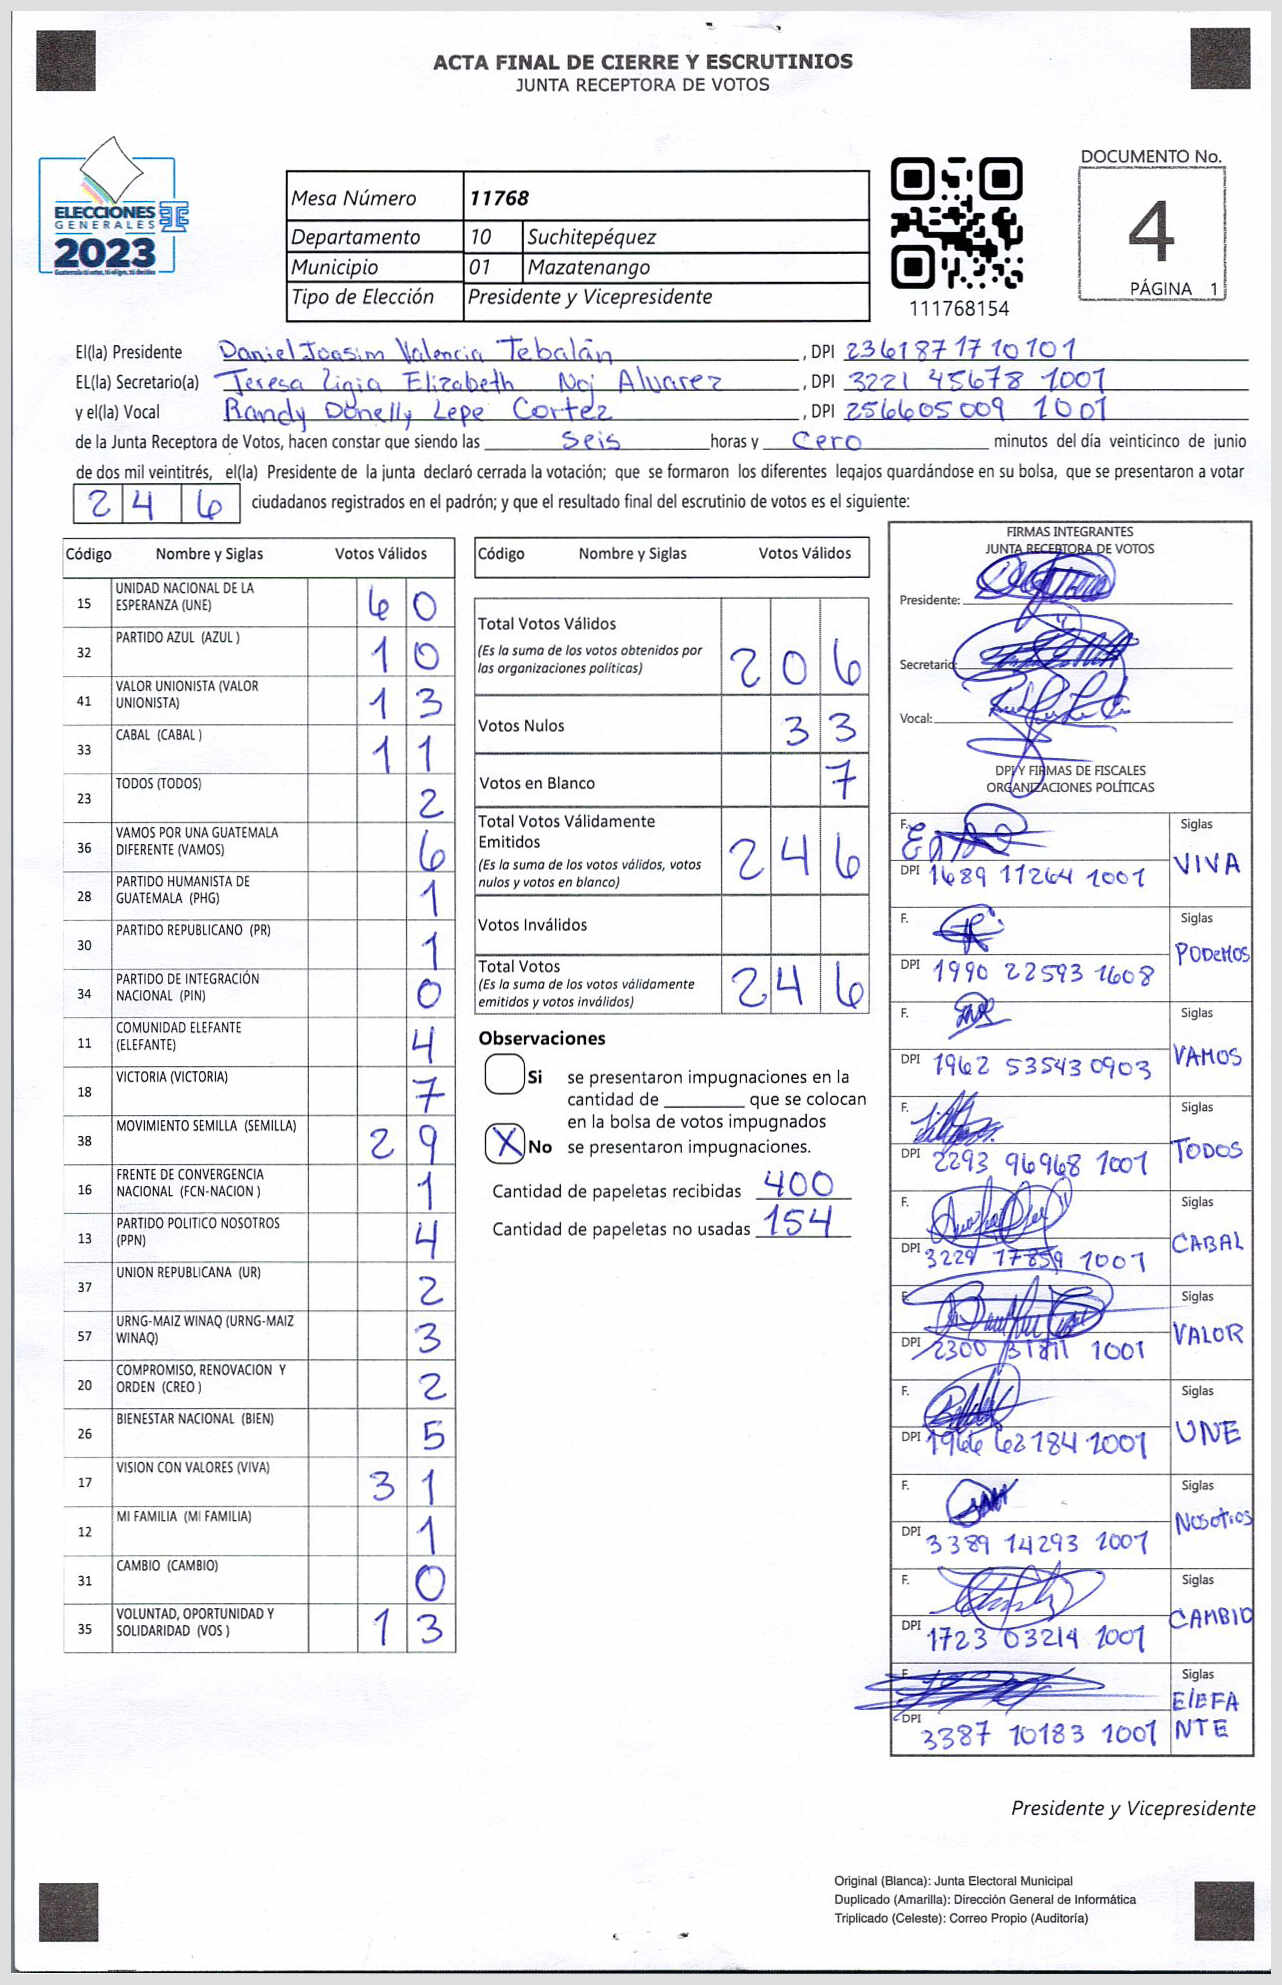 ACTA FINAL DE CIERRE Y ESCRUTINIOS
JUNTA RECEPTORA DE VOTOS
ELECCIONES
GENERALES
2023
Mesa Número 11768
Departamento 10 Suchitepéquez
Municipio 01 Mazatenango
Tipo de Elección Presidente y Vicepresidente
111768154
DOCUMENTO No.
4
PÁGINA 1
El(la) Presidente Daniel Joasim Valencia Tebalán, DPI 2361871710101
EL(la) Secretario(a) Teresa Ligia Elizabeth Noj Alvarez, DPI 3221 45678 1001
y el(la) Vocal Randy Donelly Lepe Cortez, DPI 256605009 1001
de la Junta Receptora de Votos, hacen constar que siendo las seis horas y cero minutos del día veinticinco de junio
de dos mil veintitrés, el(la) Presidente de la junta declaró cerrada la votación; que se formaron los diferentes legajos quardándose en su bolsa, que se presentaron a votar
246 ciudadanos registrados en el padrón; y que el resultado final del escrutinio de votos es el siguiente:
Código Nombre y Siglas Votos Válidos
15 UNIDAD NACIONAL DE LA ESPERANZA (UNE) 60
32 PARTIDO AZUL (AZUL ) 10
41 VALOR UNIONISTA (VALOR UNIONISTA) 13
33 CABAL (CABAL ) 11
23 TODOS (TODOS) 2
36 VAMOS POR UNA GUATEMALA DIFERENTE (VAMOS) 6
28 PARTIDO HUMANISTA DE GUATEMALA (PHG) 1
30 PARTIDO REPUBLICANO (PR) 1
34 PARTIDO DE INTEGRACIÓN NACIONAL (PIN) 0
11 COMUNIDAD ELEFANTE (ELEFANTE) 4
18 VICTORIA (VICTORIA) 7
38 MOVIMIENTO SEMILLA (SEMILLA) 29
16 FRENTE DE CONVERGENCIA NACIONAL (FCN-NACION ) 1
13 PARTIDO POLITICO NOSOTROS (PPN) 4
37 UNION REPUBLICANA (UR) 2
57 URNG-MAIZ WINAQ (URNG-MAIZ WINAQ) 3
20 COMPROMISO, RENOVACION Y ORDEN (CREO ) 2
26 BIENESTAR NACIONAL (BIEN) 5
17 VISION CON VALORES (VIVA) 31
12 MI FAMILIA (MI FAMILIA) 1
31 CAMBIO (CAMBIO) 0
35 VOLUNTAD, OPORTUNIDAD Y SOLIDARIDAD (VOS ) 13
Código Nombre y Siglas Votos Válidos
Total Votos Válidos 206
(Es la suma de los votos obtenidos por
las organizaciones políticas)
Votos Nulos 33
Votos en Blanco 7
Total Votos Válidamente
Emitidos 246
(Es la suma de los votos válidos, votos
nulos y votos en blanco)
Votos Inválidos
Total Votos 246
(Es la suma de los votos válidamente
emitidos y votos inválidos)
Observaciones
Si se presentaron impugnaciones en la
cantidad de ________ que se colocan
en la bolsa de votos impugnados
X No se presentaron impugnaciones.
Cantidad de papeletas recibidas 400
Cantidad de papeletas no usadas 154
FIRMAS INTEGRANTES
JUNTA RECEPTORA DE VOTOS
Presidente:
Secretario:
Vocal:
DPI Y FIRMAS DE FISCALES
ORGANIZACIONES POLÍTICAS
F. Siglas
DPI 1689 11264 1001 VIVA
F. Siglas
DPI 1990 22593 1608 PODEMOS
F. Siglas
DPI 1962 53543 0903 VAMOS
F. Siglas
DPI 2293 96968 1001 TODOS
F. Siglas
DPI 3229 17859 1001 CABAL
F. Siglas
DPI 2300 31811 1001 VALOR
F. Siglas
DPI 1966 62784 1001 UNE
F. Siglas
DPI 3389 14293 1001 Nosotros
F. Siglas
DPI 1723 03214 1001 CAMBIO
F. Siglas
DPI 3387 10183 1001 ElEFA
NTE
Presidente y Vicepresidente
Original (Blanca): Junta Electoral Municipal
Duplicado (Amarilla): Dirección General de Informática
Triplicado (Celeste): Correo Propio (Auditoría)